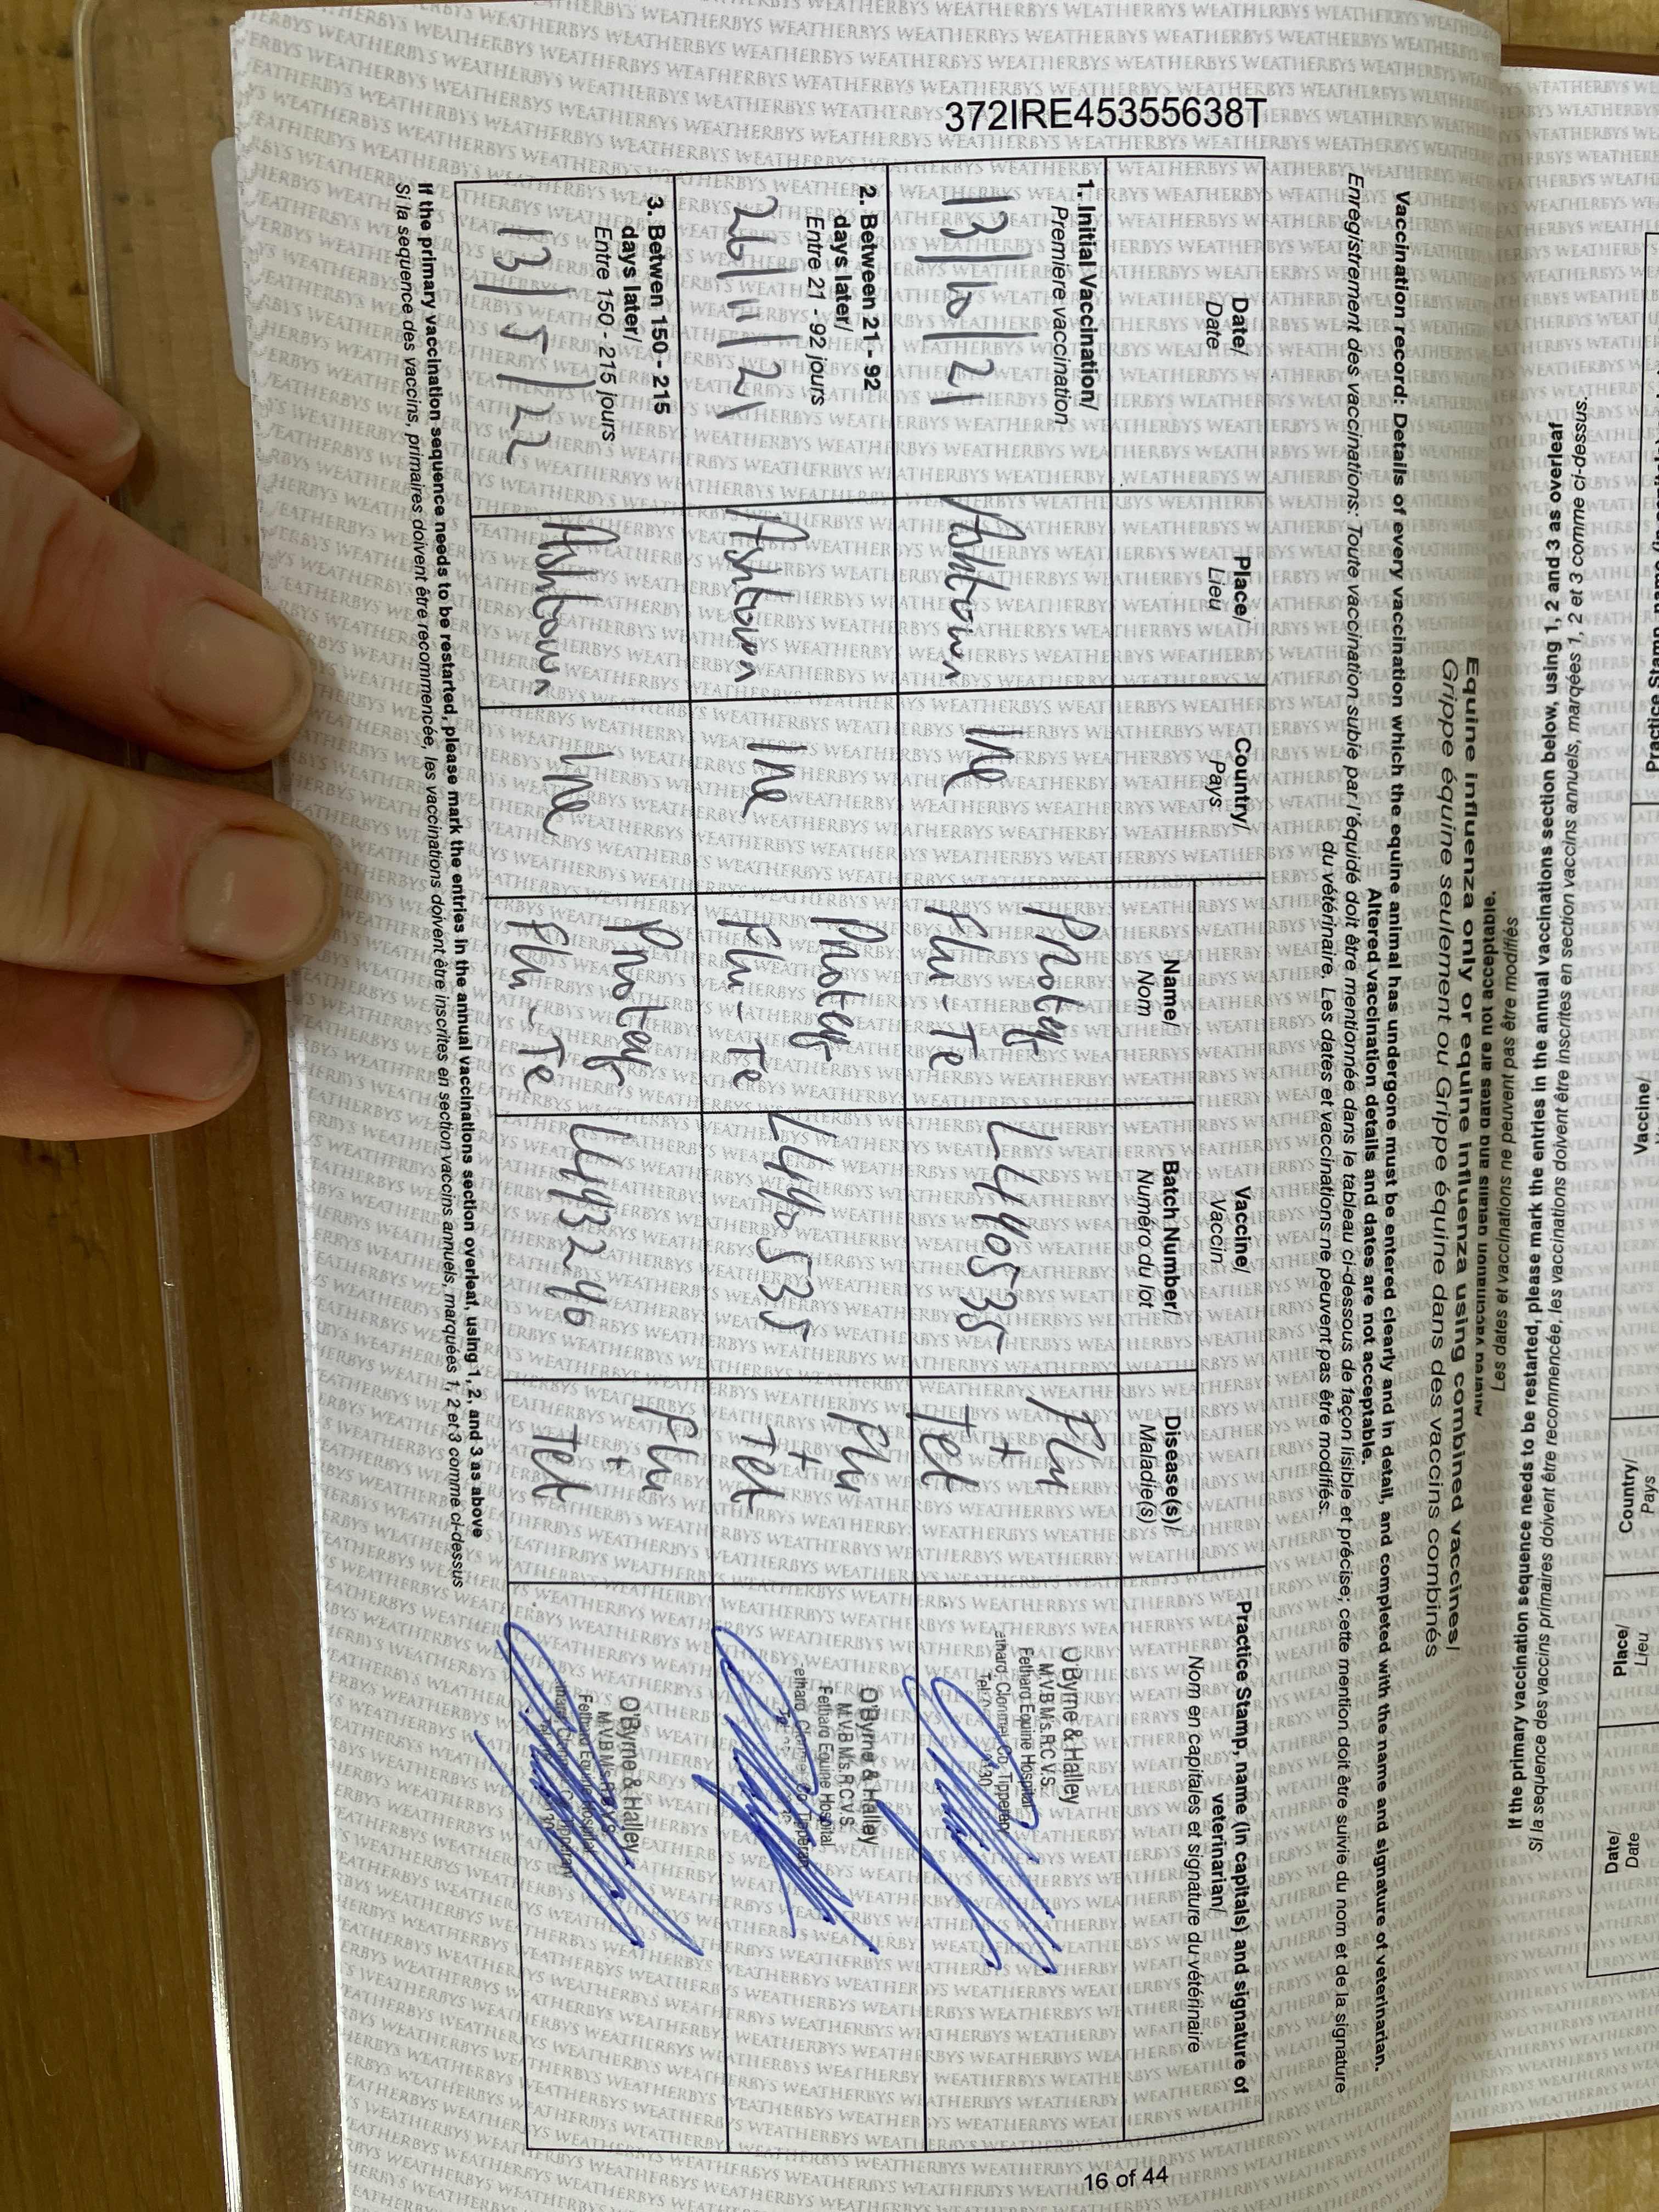 372IRE45355638T
Equine influenza only or equine influenza using combined vaccines/
Grippe équine seulement ou Grippe équine dans des vaccins combinés
Vaccination record: Details of every vaccination which the equine animal has undergone must be entered clearly and in detail, and completed with the name and signature of veterinarian.
Altered vaccination details and dates are not acceptable.
Enregistrement des vaccinations: Toute vaccination subie par l'équidé doit être mentionnée dans le tableau ci-dessous de façon lisible et précise; cette mention doit être suivie du nom et de la signature
du vétérinaire. Les dates et vaccinations ne peuvent pas être modifiés.
Date/ Place/ Country/ Vaccine/ Practice Stamp, name (in capitals) and signature of
Date Lieu Pays Vaccin veterinarian/
Name/ Batch Number/ Disease(s)/ Nom en capitales et signature du vétérinaire
Nom Numéro du lot Maladie(s)
1. Initial Vaccination/
Premiere vaccination
13/10/21 Ashtown Ire Proteq Flu-Te L490535 Flu + Tet
O'Byrne & Halley
M.V.B M's.R.C.V.S.
Fethard Equine Hospital
2. Between 21 - 92
days later/
Entre 21 - 92 jours
26/11/21 Ashtown Ire Proteq Flu-Te L490535 Flu + Tet
O'Byrne & Halley
M.V.B M's.R.C.V.S.
Fethard Equine Hospital
3. Betwen 150 - 215
days later/
Entre 150 - 215 jours
13/5/22 Ashtown Ire Proteq Flu-Te L493240 Flu + Tet
O'Byrne & Halley
M.V.B M's.R.C.V.S.
Fethard Equine Hospital
If the primary vaccination sequence needs to be restarted, please mark the entries in the annual vaccinations section overleaf, using 1, 2, and 3 as above
Si la sequence des vaccins, primaires doivent être recommencée, les vaccinations doivent être inscrites en section vaccins annuels, marquées 1, 2 et 3 comme ci-dessus
16 of 44
Les dates et vaccinations ne peuvent pas être modifiés
If the primary vaccination sequence needs to be restarted, please mark the entries in the annual vaccinations section below, using 1, 2 and 3 as overleaf
Si la sequence des vaccins primaires doivent être recommencée, les vaccinations doivent être inscrites en section vaccins annuels, marqées 1, 2 et 3 comme ci-dessus.
Date/ Place/ Country/ Vaccine/
Date Lieu Pays